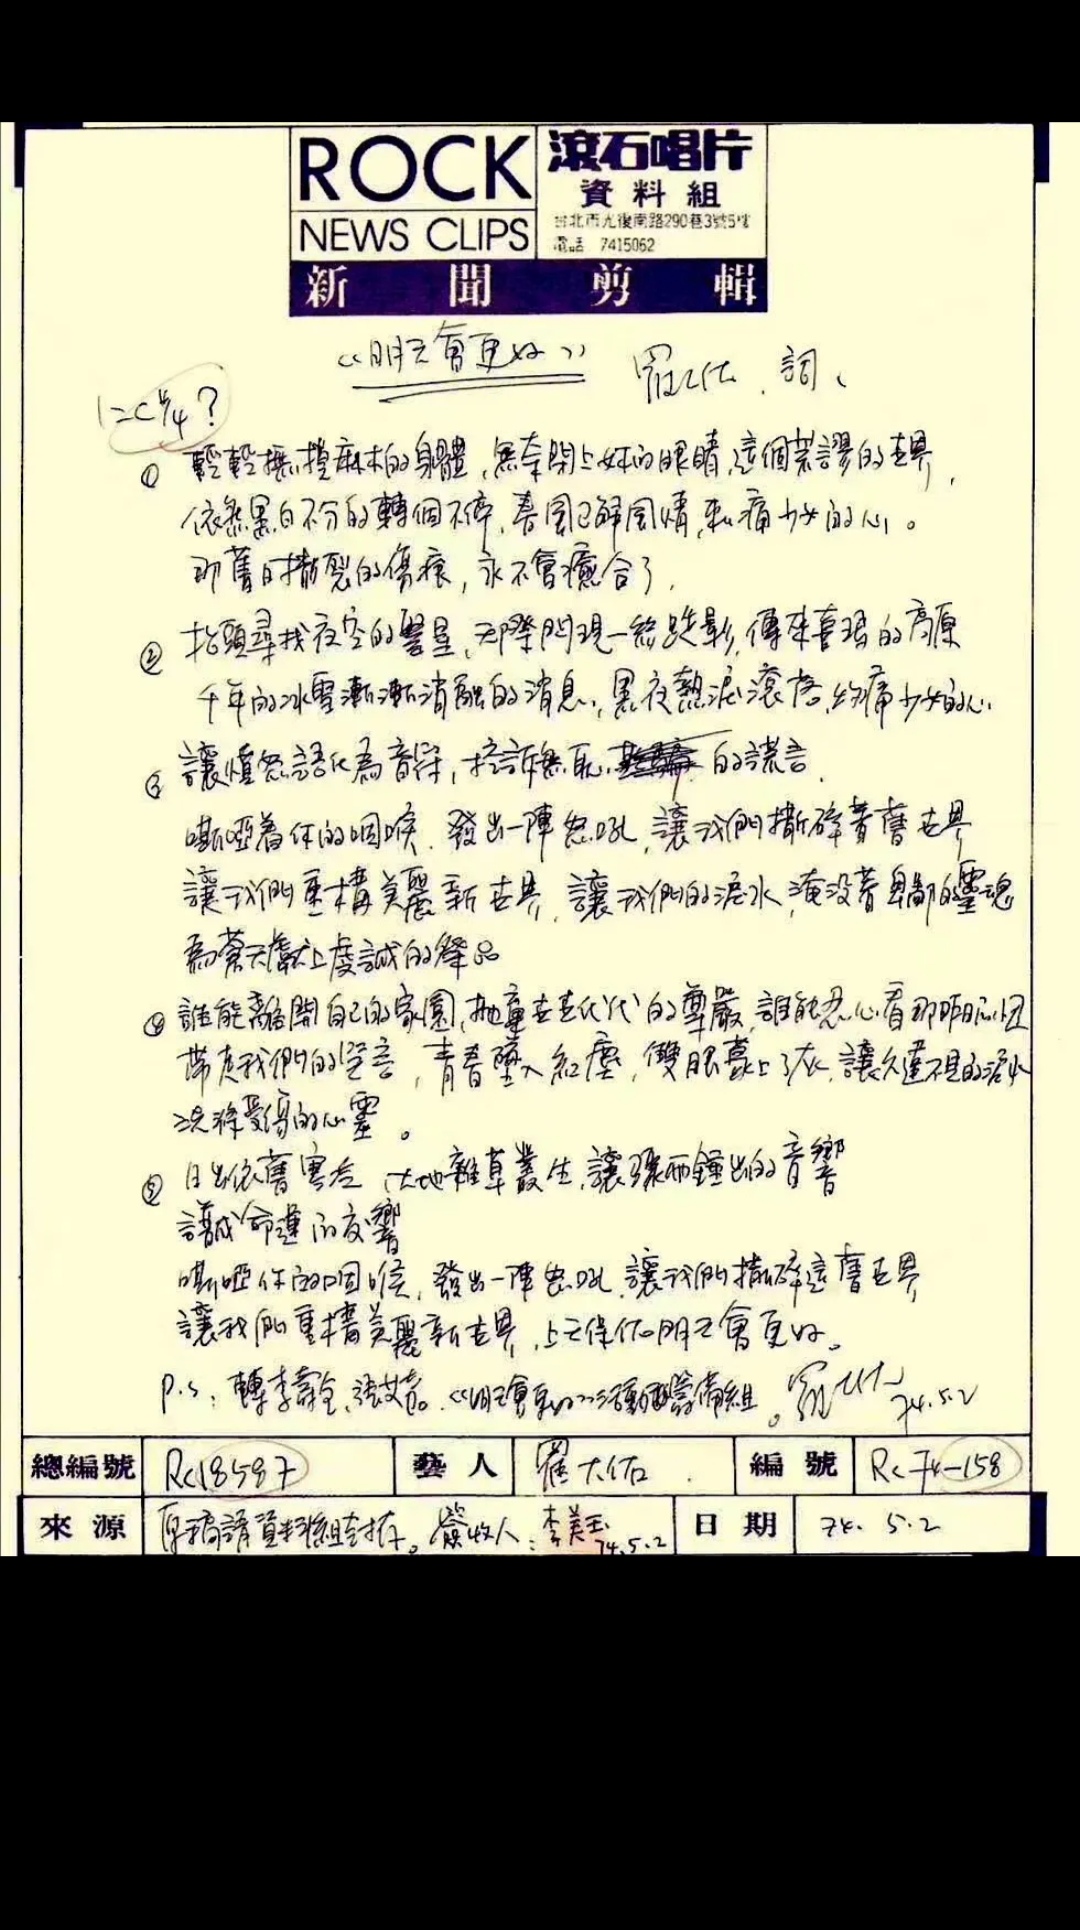 ROCK
NEWS CLIPS
滾石唱片
資料組
台北市光復南路290巷3號5樓
電話 7415062
新聞剪輯
《明天會更好》 羅大佑．詞、
1=C 4/4？
① 輕輕搖撞麻木的身體，無奈閉上妳的眼睛，這個荒謬的世界，
依然黑白不分的轉個不停，春風已解風情，刺痛少女的心。
那舊日撕裂的傷痕，永不會癒合了，
② 抬頭尋找夜空的雙星，天際閃現一絲跌影，傳來喜瑪的高原
千年的冰雪漸漸消融的消息，黑夜熱淚滾落，灼痛少女的心
③ 讓憤怒語化為音符，控訴無恥的謊言．
嘶啞着你的咽喉．發出一陣怒吼，讓我們撕碎着舊世界
讓我們重構美麗新世界，讓我們的淚水，淹沒着卑鄙的靈魂
為蒼天獻上虔誠的祭品
④ 誰能離開自己的家園，拋棄世世代代的尊嚴，誰能忍心看那昨日
帶走我們的笑言，青春墜入紅塵，雙眼蒙上了灰，讓久違不見的淚水
洗滌受傷的心靈。
⑤ 日出依舊寒冷，大地雜草叢生，讓驟雨錘出的音響
譜成命運的反響
嘶啞你的咽喉，發出一陣怒吼，讓我們撕碎這舊世界
讓我們重構美麗新世界，上天保佑明天會更好。
P.S：轉李壽全，張艾嘉。《明天會更好》活動籌備組。羅大佑 74.5.2
總編號 Rc18597 藝人 羅大佑． 編號 Rc74-158
來源 原稿請資料組封存。簽收人：李美玉 74.5.2 日期 74. 5. 2